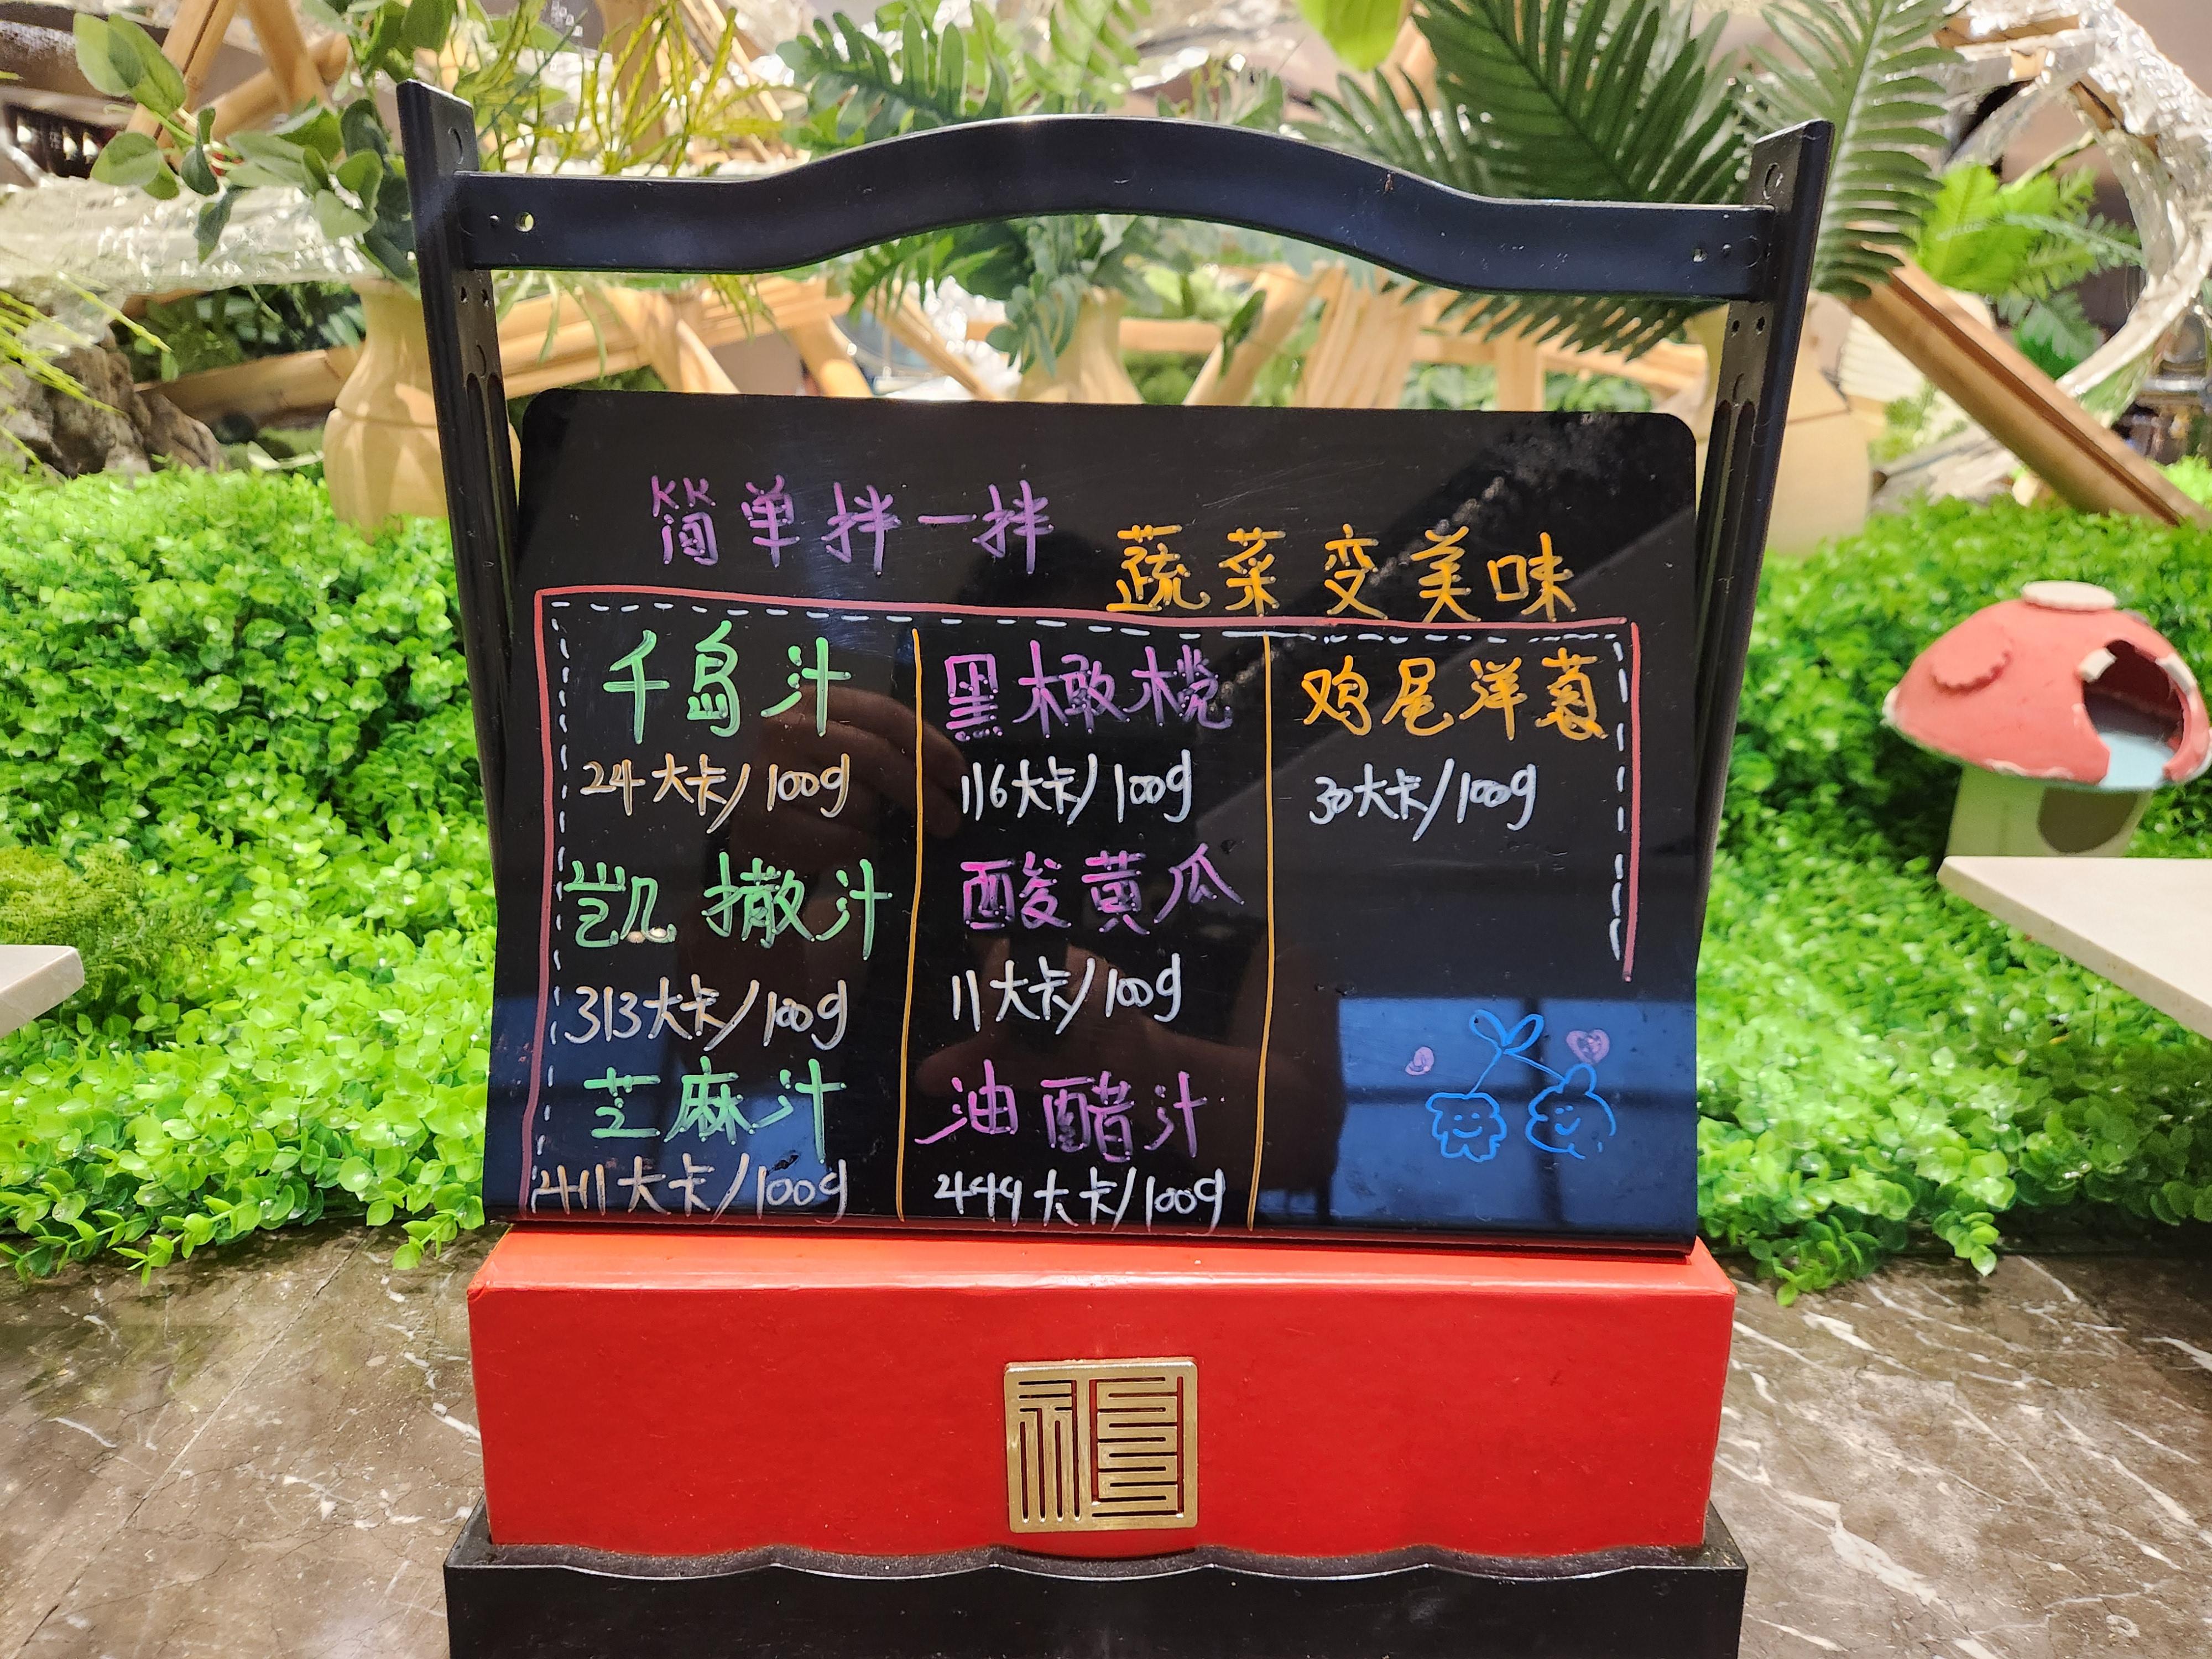 简单拌一拌
蔬菜变美味
千岛汁
24大卡/100g
凯撒汁
313大卡/100g
芝麻汁
411大卡/100g
黑橄榄
116大卡/100g
酸黄瓜
11大卡/100g
油醋汁
449大卡/100g
鸡尾洋葱
30大卡/100g
福